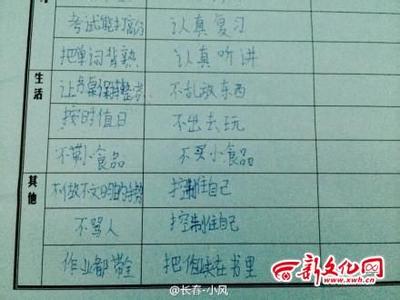 考试能打高分 认真复习
把单词背熟 认真听讲
生活
让书桌保持整齐 不乱放东西
按时值日 不出去玩
不带小食品 不买小食品
其他
不做不文明的 控制住自己
不骂人 控制住自己
作业都带全 把 在书里
新文化网
www.xwh.cn
@长春-小风